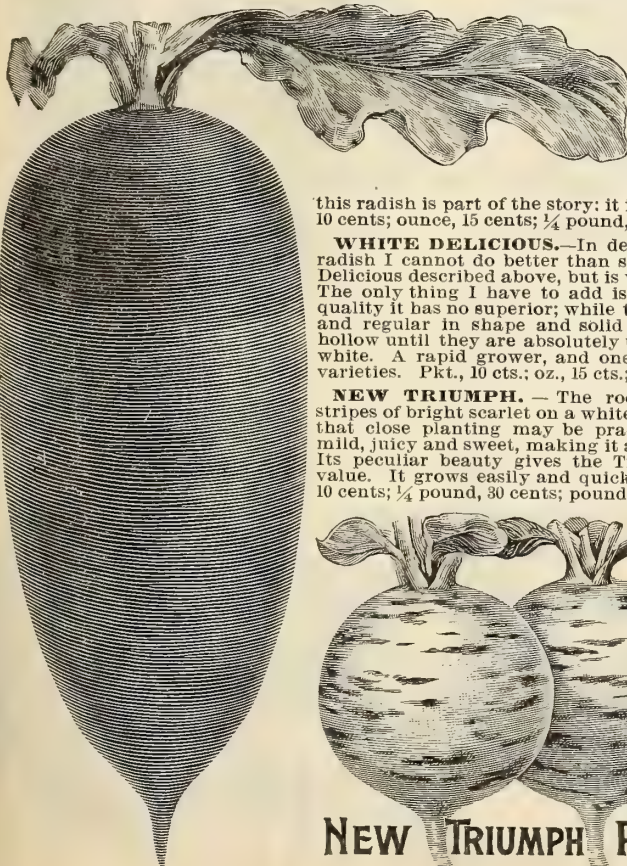 this radish is part of the story: it
10 cents; ounce, 15 cents; ¼ pound,
WHITE DELICIOUS.—In de
radish I cannot do better than s
Delicious described above, but is
The only thing I have to add is
quality it has no superior; while t
and regular in shape and solid
hollow until they are absolutely
white. A rapid grower, and one
varieties. Pkt., 10 cts.; oz., 15 cts.;
NEW TRIUMPH. — The roo
stripes of bright scarlet on a white
that close planting may be pra
mild, juicy and sweet, making it a
Its peculiar beauty gives the T
value. It grows easily and quick
10 cents; ¼ pound, 30 cents; pound
NEW TRIUMPH